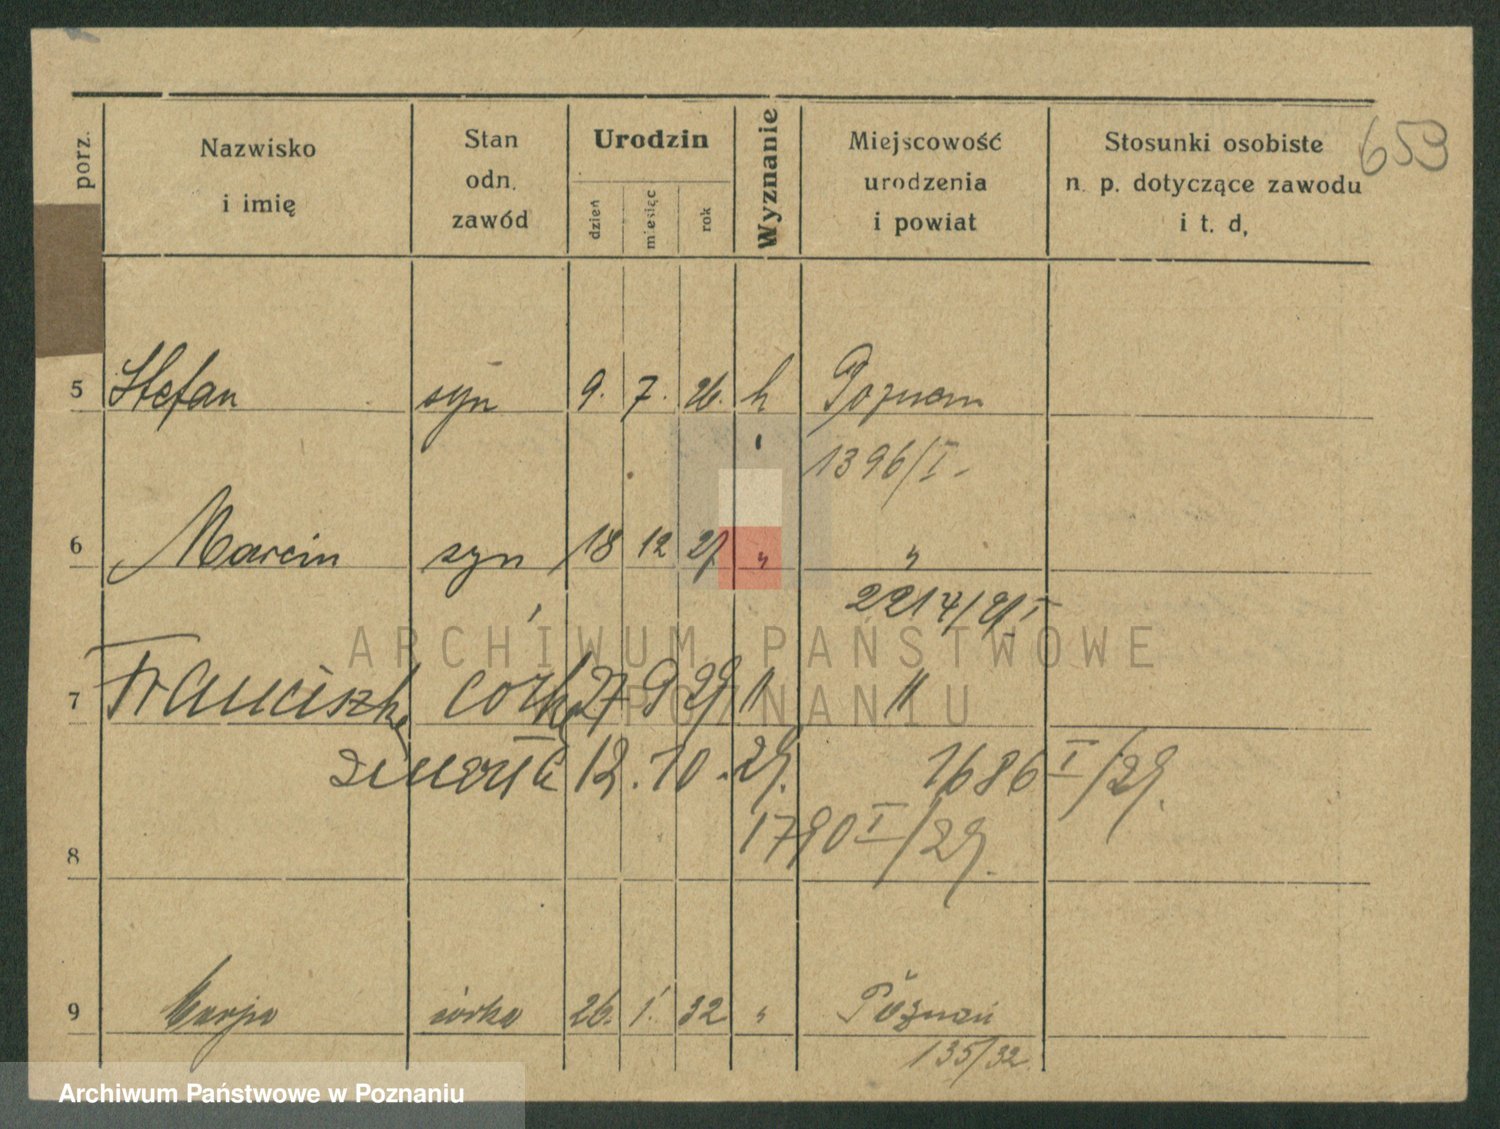 porz.
Nazwisko
i imię
Stan
odn.
zawód
Urodzin
dzień
miesięc
rok
Wyznanie
Miejscowość
urodzenia
i powiat
Stosunki osobiste
n. p. dotyczące zawodu
i t. d,
653
5 Stefan syn 9. 7. 26. k Poznań
1396/I -
6 Marcin syn 18 12 27 " "
2214/27 I
7 Franciszka córka 27 9 29 " "
zmarła 12. 10. 29. 1686 I/29.
1790 I/29.
8
9 Marja córka 26. 1. 32 " Poznań
135/32.
ARCHIWUM PAŃSTWOWE
POZNANIU
Archiwum Państwowe w Poznaniu